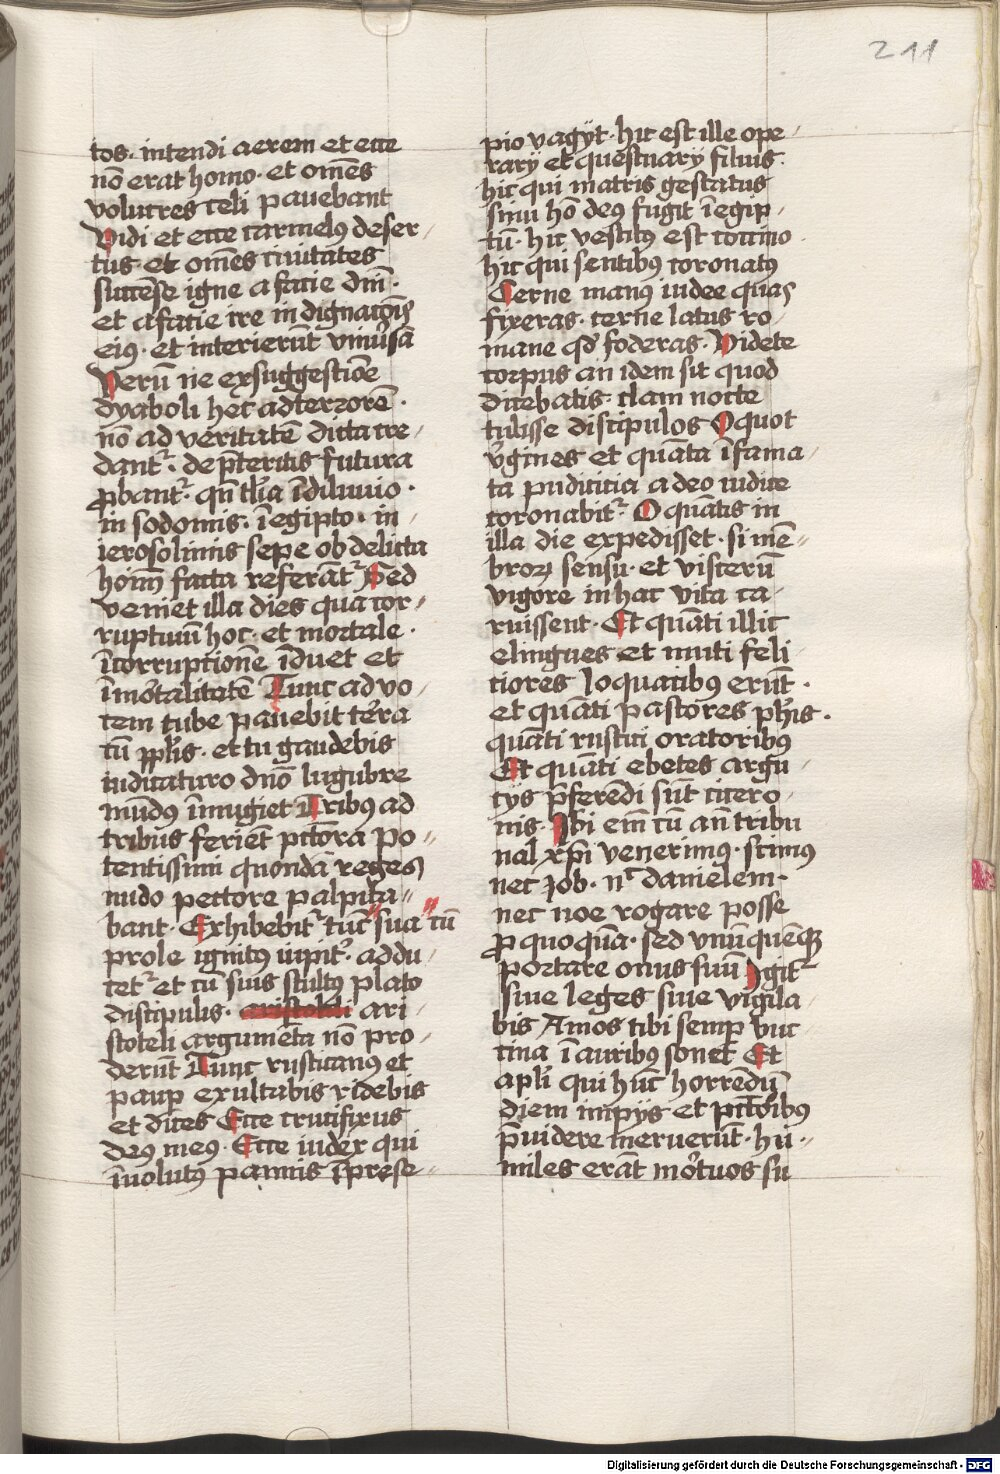 211
tos. intendi aerem et ecce
nō erat homo. et om̄es
volucres celi pavebant
Vidi et ecce carmelꝯ deser
tus et om̄es civitates
succēse igne a facie dn̄i.
et a facie ire indignacōis
eiꝯ. et interierūt univ̓sa
Verū ne ex suggestiōe
dyaboli hec ad terrorē.
nō ad veritatē dicta cre
dant᷑. de p̄teritis futura
ꝓbant᷑. qn̄
ī diluvio.
in sodomis. ī egipto. in
ierosolimis sepe ob delicta
hoīm facta referāt᷑ Sed
veniet illa dies qua cor
ruptivū hoc. et mortale.
īcorruptionē īduet et
īmo̓talitatē Tunc ad vo
cem tube pavebit te̓ra
cū pp̄lis. et tu gaudebis
iudicaturo dn̄o lugubre
mūdꝯ īmugiet Tribꝯ ad
tribus feriēt pectora po
tentissimi quondā reges
nudo pectore palpita
bant. Exhibebit᷑ tūc sua cū
prole ignitꝯ iupit̓. addu
cet᷑ et cū suis stultꝯ plato
discipulis. aristotili ari
stoteli argumēta nō pro
derūt Tunc rusticanꝯ et
paup exultabis ridebis
et dices Ecce crucifixus
deꝯ meꝯ. Ecce iudex qui
īvolutꝯ pannis ī prese
pio vagijt. hic est ille ope
rarij et questuarij filius.
hic qui matris gestatus
sinu hō deꝯ fugit ī egip
tū. hic vestitꝯ est coccino.
hic qui sentibꝯ coronatꝯ
Cerne manꝯ iudee quas
fixeras. cerne latus ro
mane qd̓ foderas. Videte
corpus an idem sit quod
dicebatis. clam nocte
tulisse discipulos O quot
v̓gines et quāta īfama
ta pudicicia a deo iudice
coronabit᷑ O quātis in
illa die expedisset. si mē
broꝝ sensu. et viscerū
vigore in hac vita ca
ruissent. Et quāti illic
elingues et muti feli
ciores loquacibꝯ erūt.
et quāti pastores ph̓is.
quāti rustici oratoribꝯ
Et quāti ebetes argu
cijs p̄ferēdi sūt cicero
nis. Ibi em̄ cū an̄ tribu
nal xp̄i venerimꝯ. scimꝯ
nec Iob. nᶜ danielem.
nec noe rogare posse
ꝓ quoquā. sed unūquēqꝫ
portare onus suū Igit᷑
sive leges sive vigila
bis Amos tibi semp vuc
cina ī auribꝯ sonet Et
apl̓i qui hūc horrēdū
diem impijs et pcc̄oribꝯ
p̄videre meruerūt. hu
miles erāt mo̓tuos su
Digitalisierung gefördert durch die Deutsche Forschungsgemeinschaft - DFG